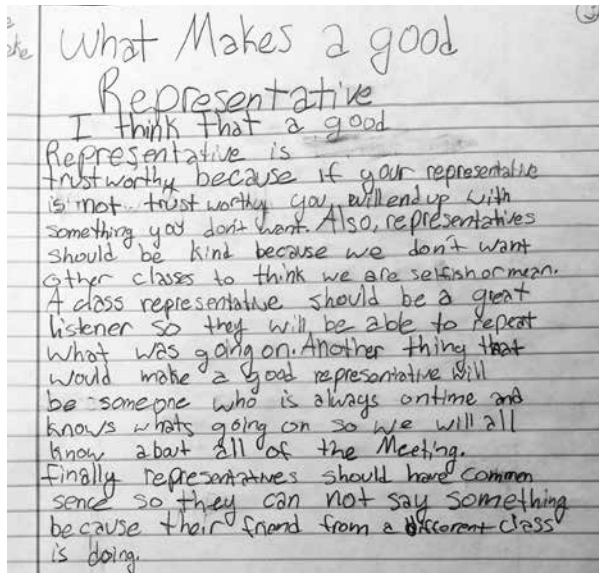 What Makes a good
Representative
I think that a good
Representative is
trustworthy because if your representative
is not trustworthy you will end up with
something you don't want. Also, representatives
should be kind because we don't want
other classes to think we are selfish or mean.
A class representative should be a great
listener so they will be able to repeat
what was going on. Another thing that
would make a good representative will
be someone who is always ontime and
knows whats going on so we will all
know about all of the Meeting.
finally representatives should have commen
sence so they can not say something
because their friend from a different class
is doing.